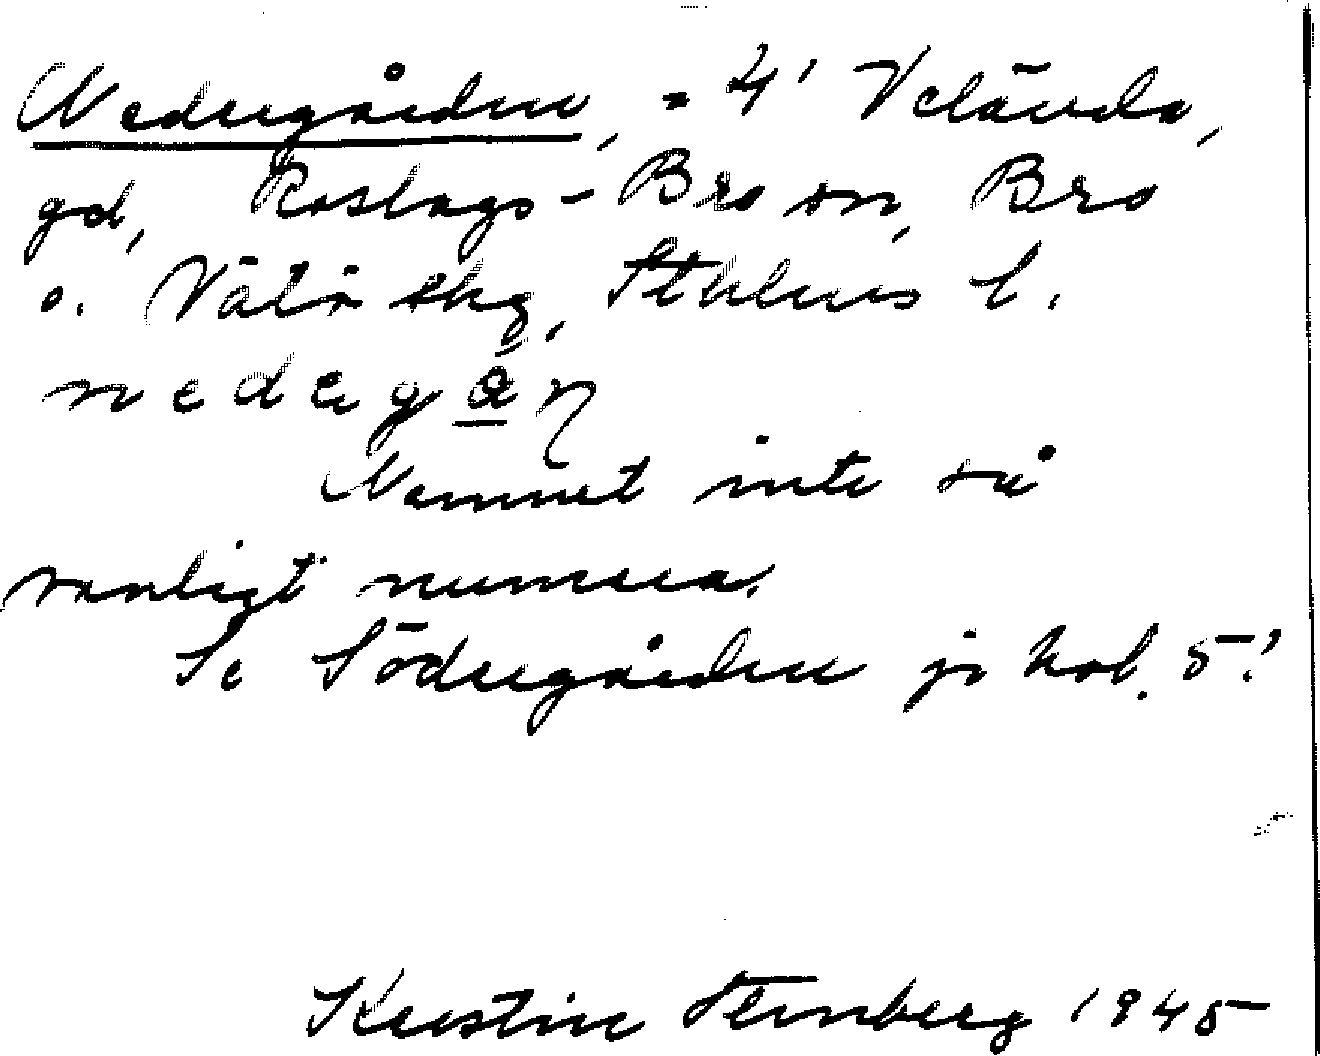 Nedergården, = 4' Velända,
gd, Roslags-Bro sn, Bro
o. Vätö skg, Sthlms l.
nedagån
Namnet inte så
vanligt numera.
Se Södergården
Kerstin Stenberg 1945